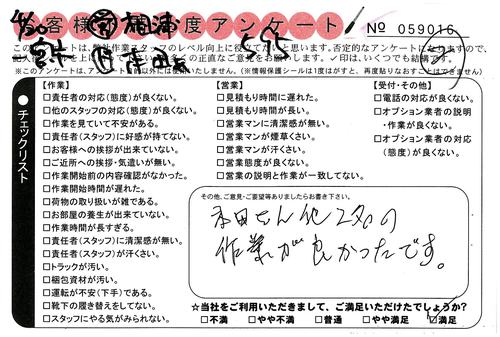 お客様満足度アンケート
№ 059016
このアンケートは、弊社作業スタッフのレベル向上に役立てたいと思います。否定的なアンケートになりますので、
※このアンケートは、アンケート目的以外には使用いたしません。(※情報保護シールは1度はがすと、再度貼りなおすことはできません)
チェックリスト
【作業】
□責任者の対応(態度)が良くない。
□他のスタッフの対応(態度)が良くない。
□作業を見ていて不安がある。
□責任者(スタッフ)に好感が持てない。
□お客様への挨拶が出来ていない。
□ご近所への挨拶・気遣いが無い。
□作業開始前の内容確認がなかった。
□作業開始時間が遅れた。
□荷物の取り扱いが雑である。
□お部屋の養生が出来ていない。
□作業時間が長すぎる。
□責任者(スタッフ)に清潔感が無い。
□責任者(スタッフ)が汗くさい。
□トラックが汚い。
□梱包資材が汚い。
□運転が不安(下手)である。
□靴下の履き替えをしてない。
□スタッフにやる気がみられない。
【営業】
□見積もり時間に遅れた。
□見積もり時間が長い。
□営業マンに清潔感が無い。
□営業マンが煙草くさい。
□営業マンが汗くさい。
□営業態度が良くない。
□営業の説明と作業が一致してない。
【受付・その他】
□電話の対応が良くない。
□オプション業者の説明
・作業が良くない。
□オプション業者の対応
(態度)が良くない。
その他、ご意見・ご要望等ありましたらお書き下さい。
本田さん他2名の
作業が良かったです。
☆当社をご利用いただきまして、ご満足いただけたでしょうか?
□不満 □やや不満 □普通 □やや満足 ☑満足